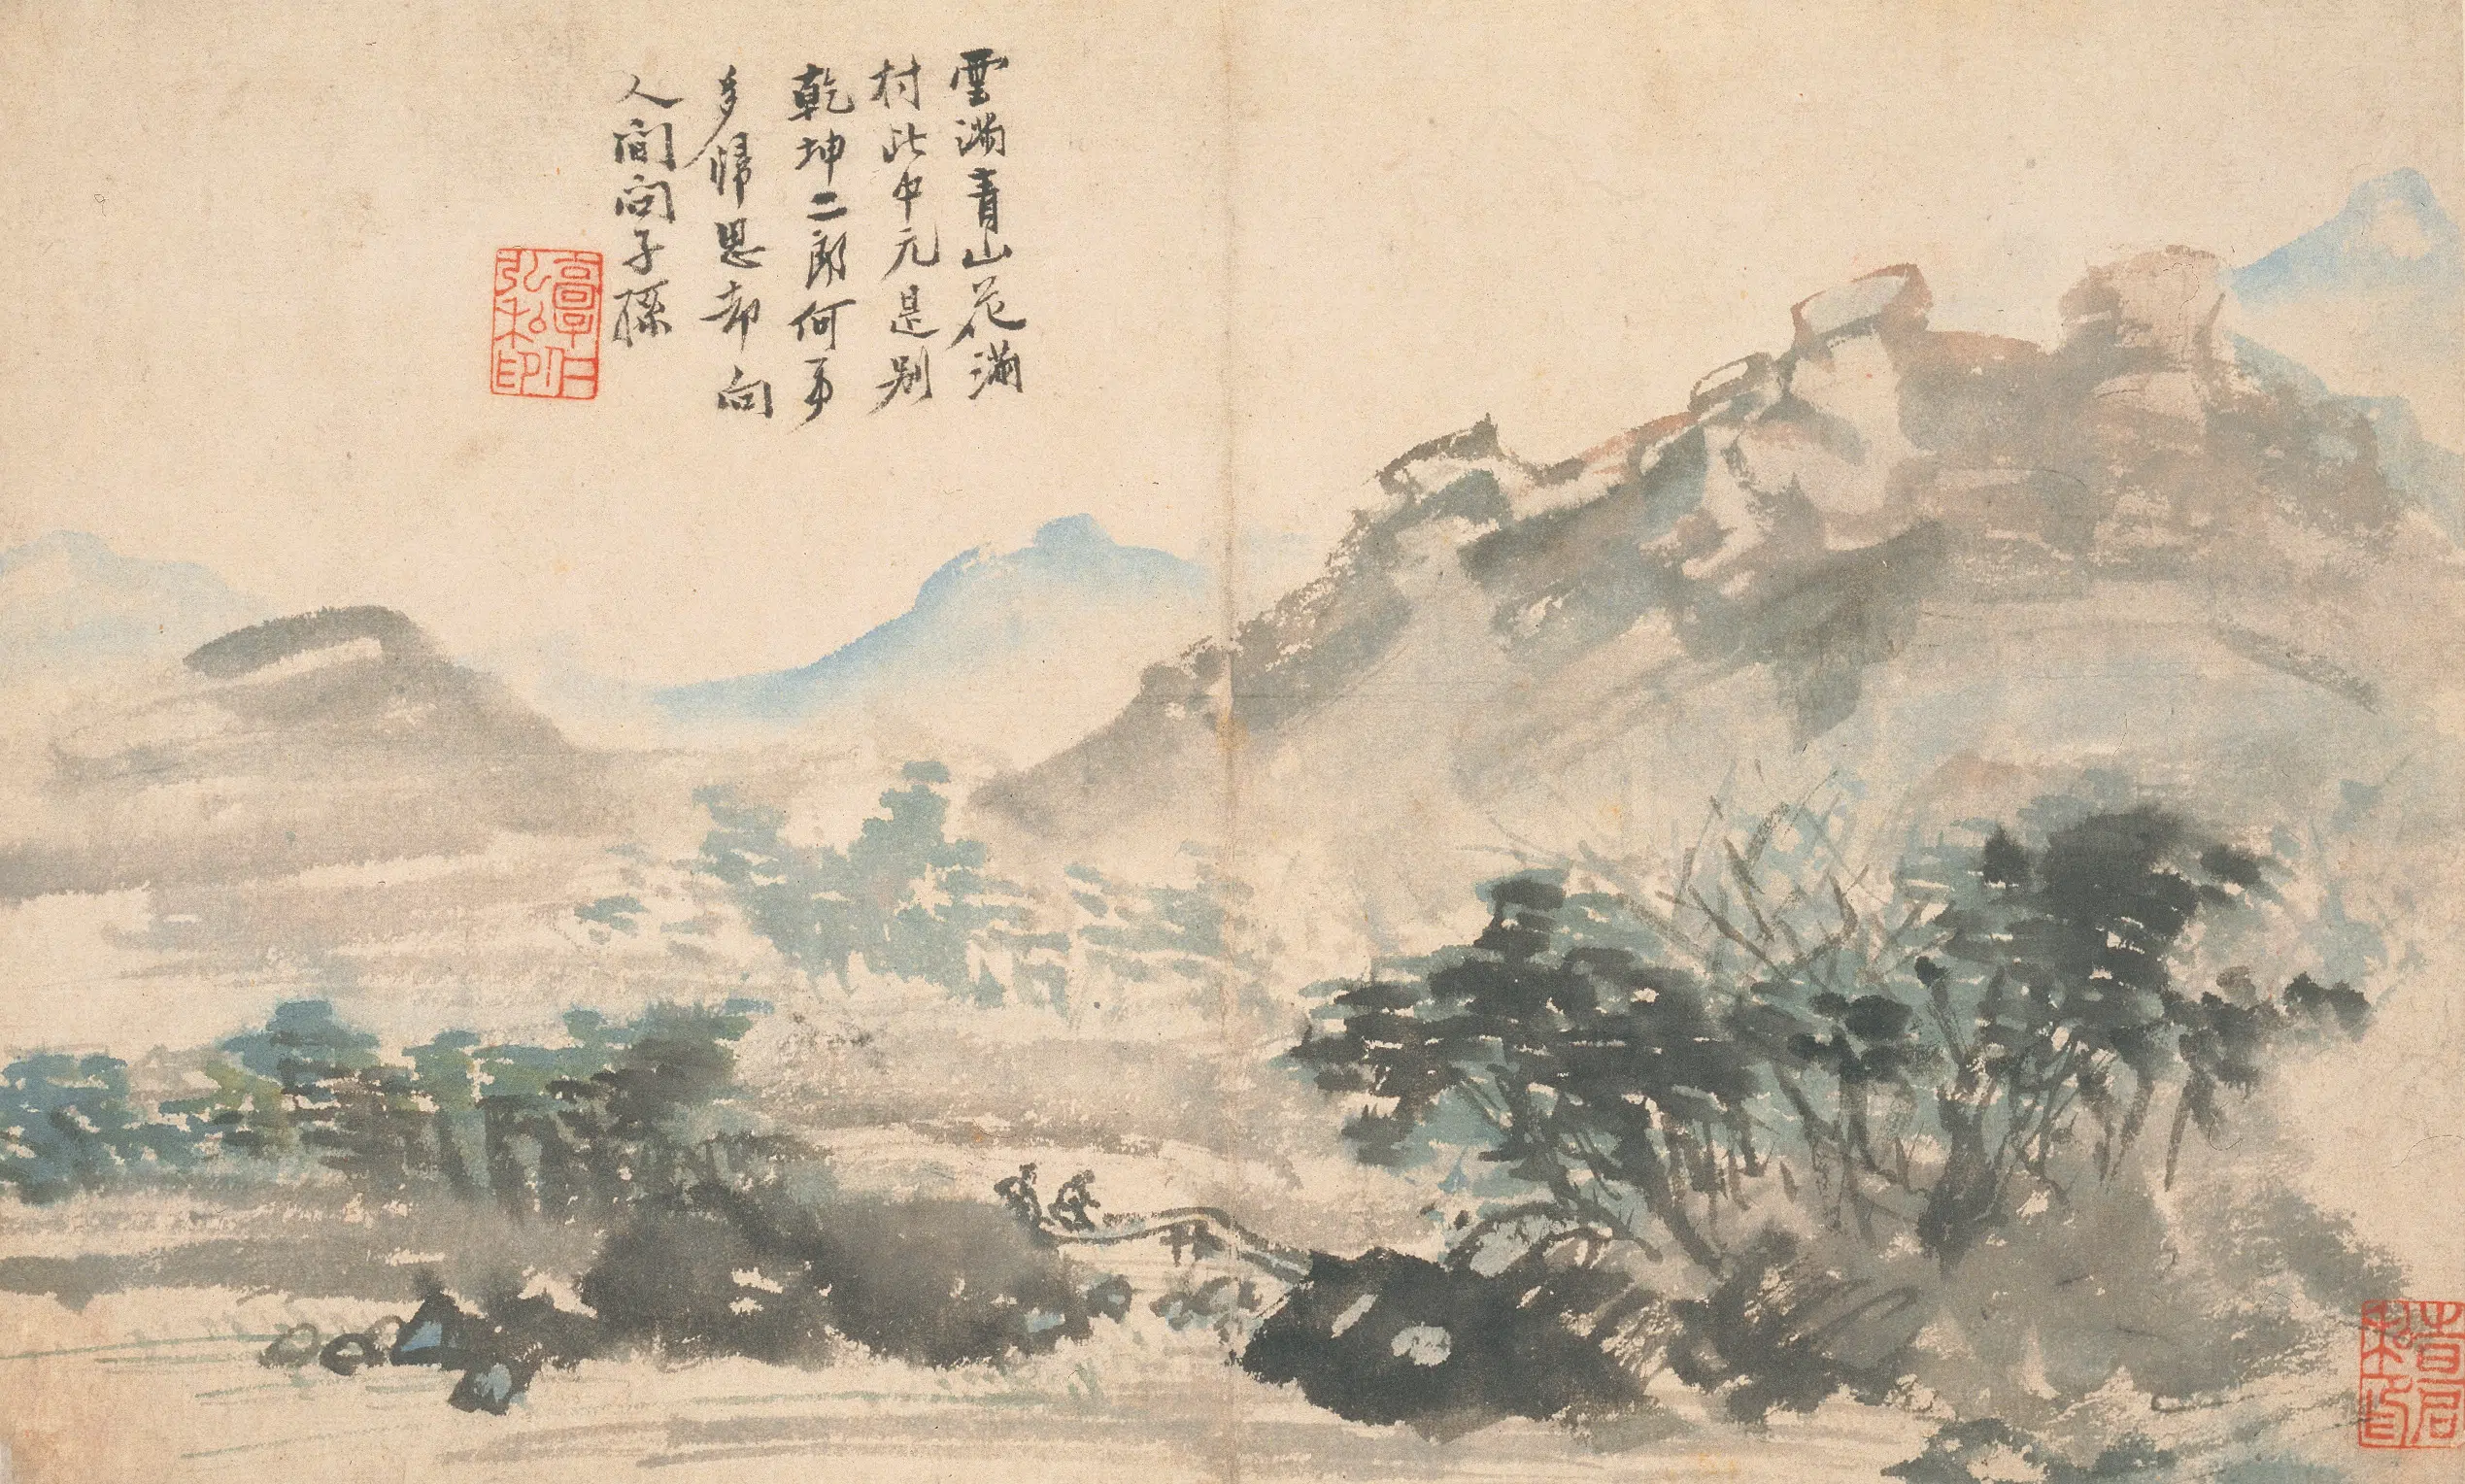 雲滿青山花滿
村此中元是别
乾坤二郎何事
多歸思却向
人間問子孫